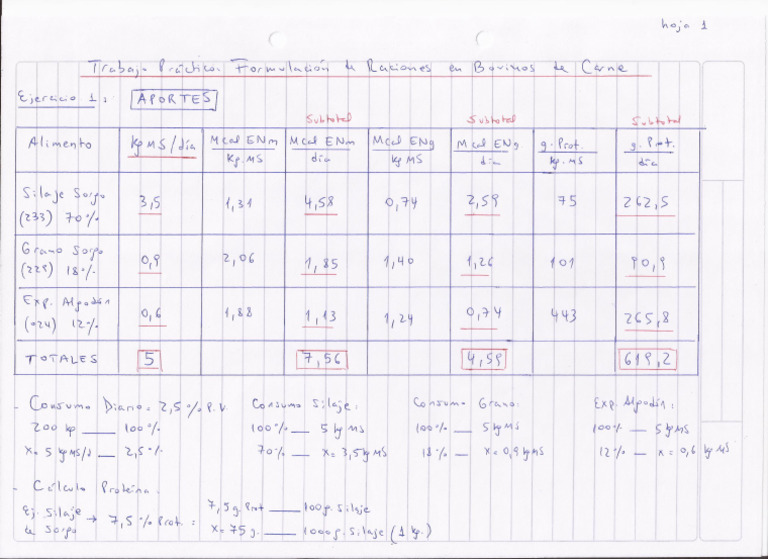 hoja 1
Trabajo Práctico: Formulación de Raciones en Bovinos de Carne
Ejercicio 1: APORTES
Subtotal Subtotal Subtotal
Alimento kg MS/día Mcal ENm/kg.MS Mcal ENm/día Mcal ENg/kg MS Mcal ENg/día g. Prot./kg. MS g. Prot./día
Silaje Sorgo (233) 70% 3,5 1,31 4,58 0,74 2,59 75 262,5
Grano Sorgo (229) 18% 0,9 2,06 1,85 1,40 1,26 101 90,9
Exp. Algodón (024) 12% 0,6 1,88 1,13 1,24 0,74 443 265,8
TOTALES 5 7,56 4,59 619,2
- Consumo Diario= 2,5% P.V. Consumo Silaje: Consumo Grano: Exp. Algodón:
200 kg ___ 100% 100% __ 5 kg MS 100% __ 5 kg MS 100% __ 5 kg MS
x= 5 kg MS/d __ 2,5% 70% __ x= 3,5 kg MS 18% __ x= 0,9 kg MS 12% __ x= 0,6 kg MS
- Cálculo Proteína:
Ej. Silaje de Sorgo → 7,5% Prot.: 7,5g Prot ___ 100g. Silaje
x= 75 g. ___ 1000g. Silaje (1 kg.)